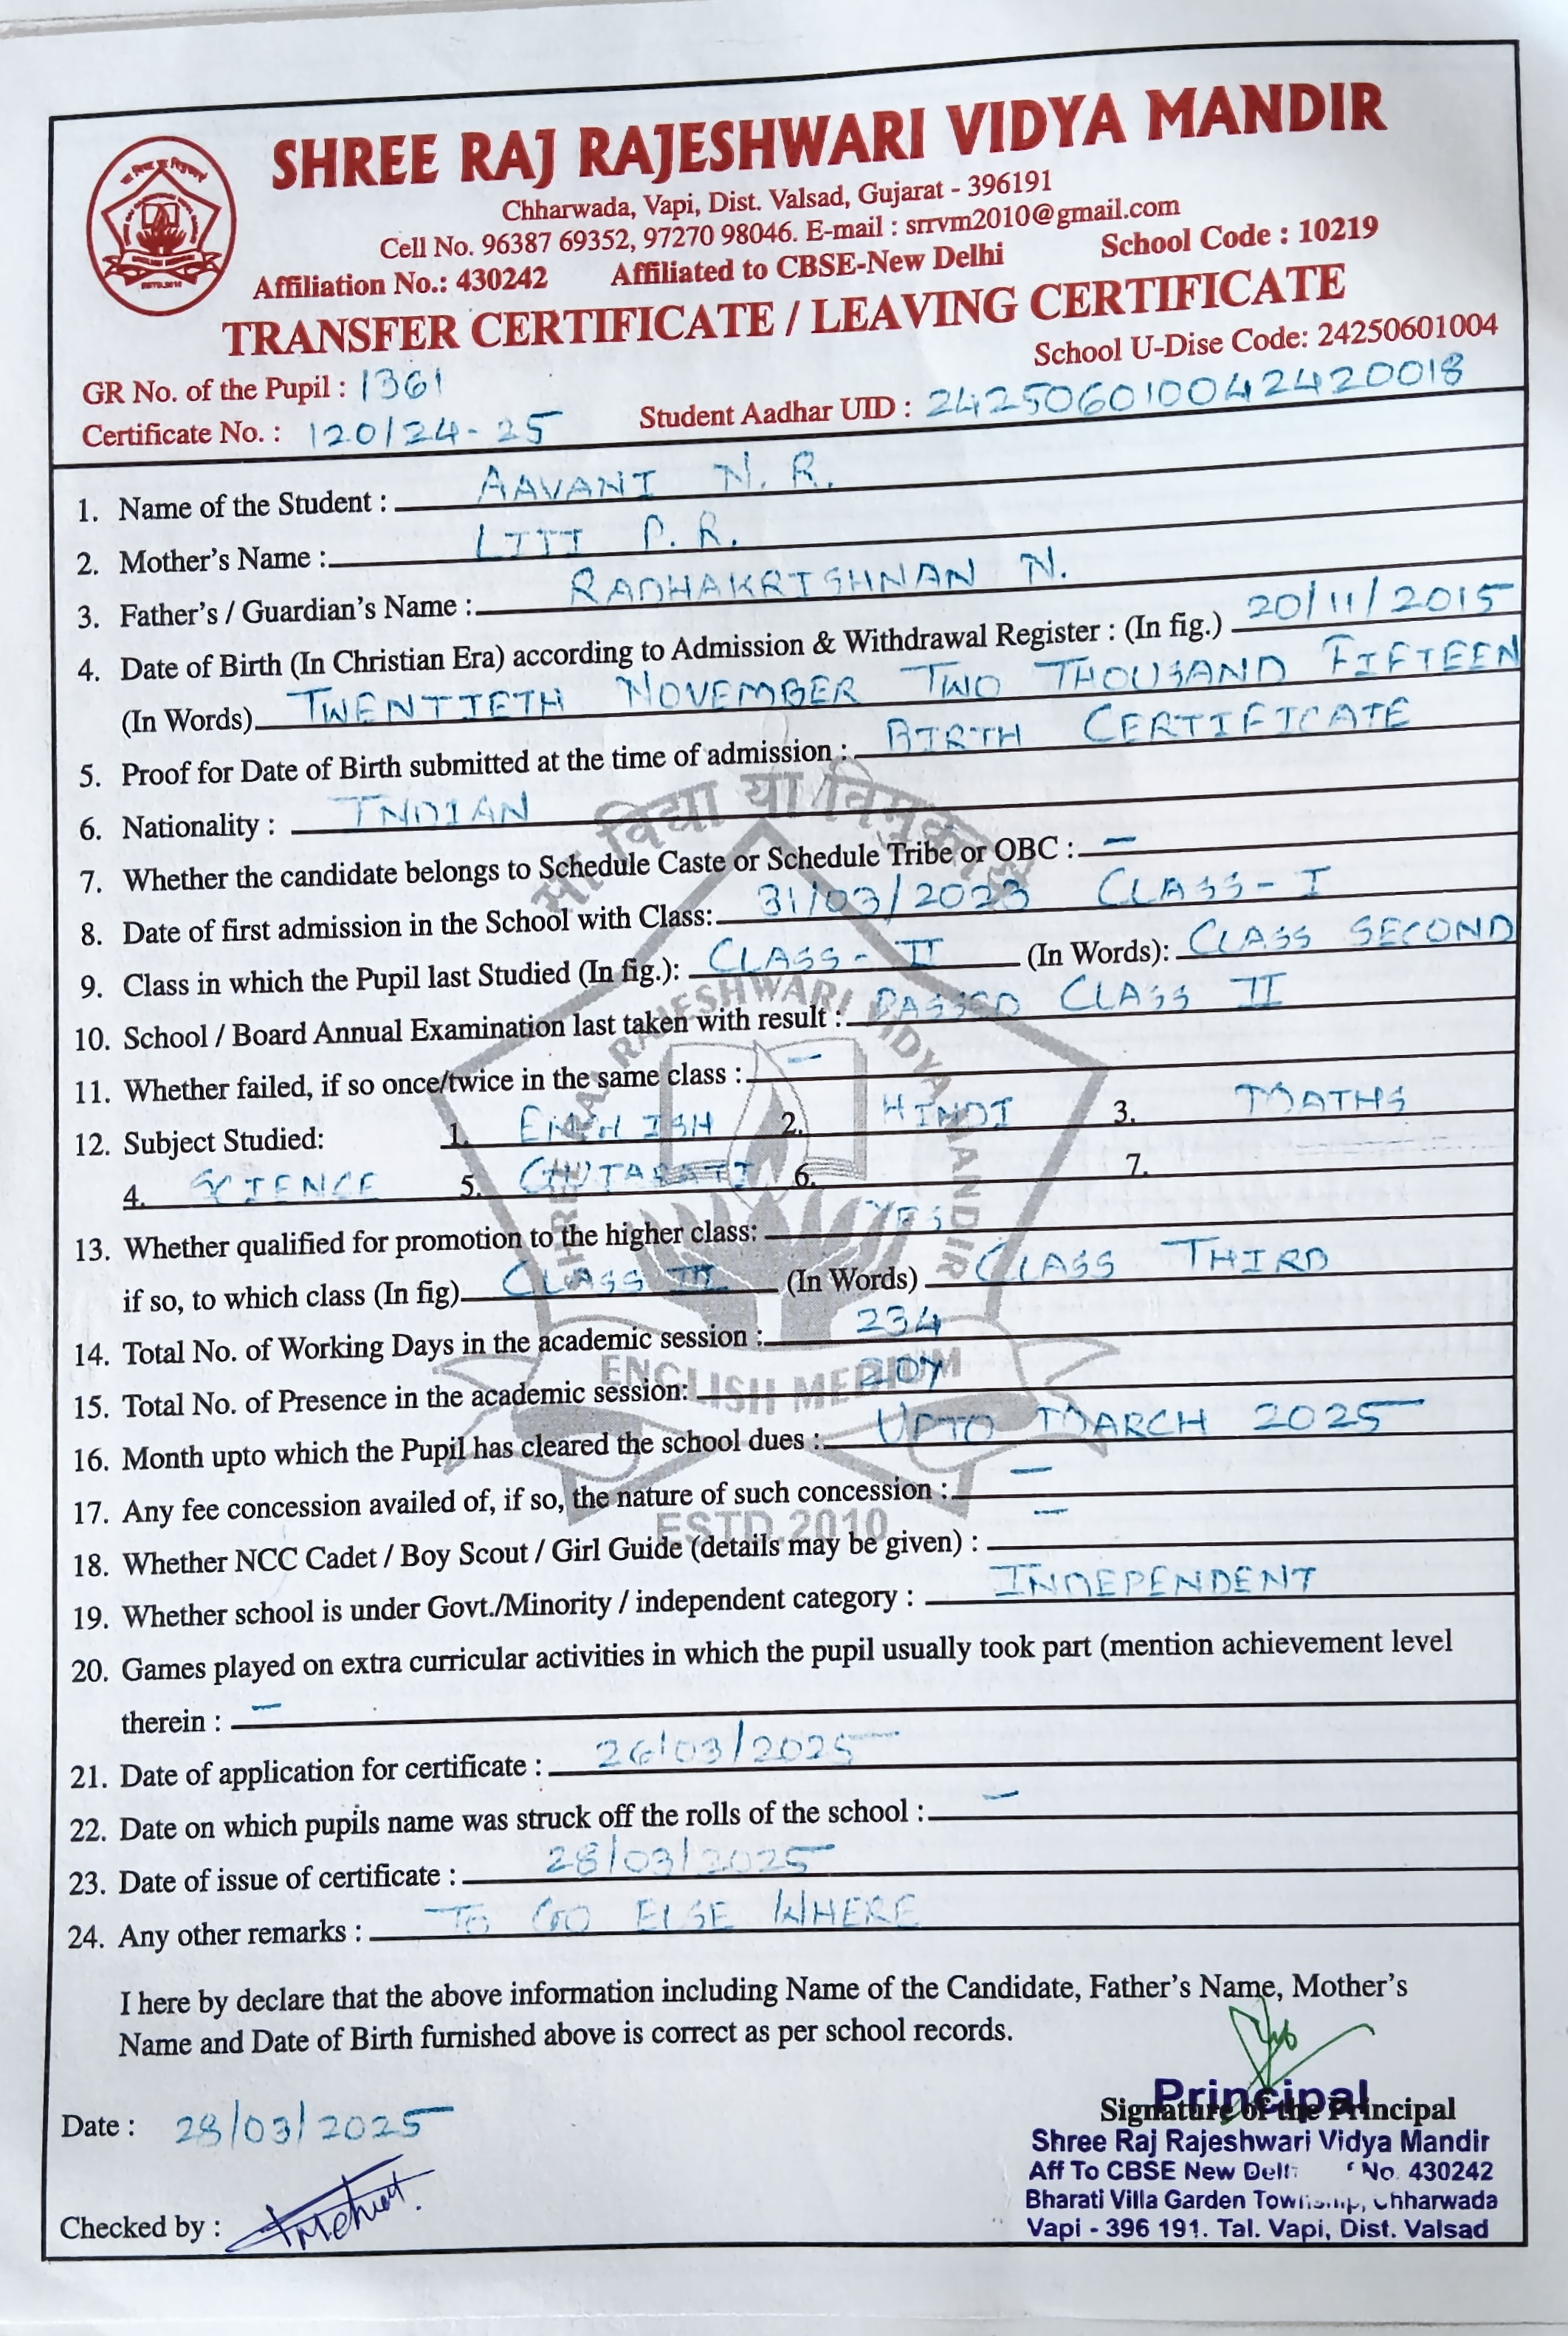 SHREE RAJ RAJESHWARI VIDYA MANDIR
Chharwada, Vapi, Dist. Valsad, Gujarat - 396191
Cell No. 96387 69352, 97270 98046. E-mail : srrvm2010@gmail.com
Affiliation No.: 430242 Affiliated to CBSE-New Delhi School Code : 10219
TRANSFER CERTIFICATE / LEAVING CERTIFICATE
School U-Dise Code: 24250601004
GR No. of the Pupil : 1361
Certificate No. : 120/24-25 Student Aadhar UID : 242506010042420018
1. Name of the Student : AAVANI N. R.
2. Mother's Name : LIJI P. R.
3. Father's / Guardian's Name : RADHAKRISHNAN N.
4. Date of Birth (In Christian Era) according to Admission & Withdrawal Register : (In fig.) 20/11/2015
(In Words) TWENTIETH NOVEMBER TWO THOUSAND FIFTEEN
5. Proof for Date of Birth submitted at the time of admission : BIRTH CERTIFICATE
6. Nationality : INDIAN
7. Whether the candidate belongs to Schedule Caste or Schedule Tribe or OBC : —
8. Date of first admission in the School with Class: 31/03/2023 CLASS - I
9. Class in which the Pupil last Studied (In fig.): CLASS - II (In Words): CLASS SECOND
10. School / Board Annual Examination last taken with result : PASSED CLASS II
11. Whether failed, if so once/twice in the same class : —
12. Subject Studied: 1. ENGLISH 2. HINDI 3. MATHS
4. SCIENCE 5. GUJARATI 6. 7.
13. Whether qualified for promotion to the higher class: YES
if so, to which class (In fig) CLASS III (In Words) CLASS THIRD
14. Total No. of Working Days in the academic session : 234
15. Total No. of Presence in the academic session: 207
16. Month upto which the Pupil has cleared the school dues : UPTO MARCH 2025
17. Any fee concession availed of, if so, the nature of such concession : —
18. Whether NCC Cadet / Boy Scout / Girl Guide (details may be given) : —
19. Whether school is under Govt./Minority / independent category : INDEPENDENT
20. Games played on extra curricular activities in which the pupil usually took part (mention achievement level
therein : —
21. Date of application for certificate : 26/03/2025
22. Date on which pupils name was struck off the rolls of the school : —
23. Date of issue of certificate : 28/03/2025
24. Any other remarks : TO GO ELSE WHERE
I here by declare that the above information including Name of the Candidate, Father's Name, Mother's
Name and Date of Birth furnished above is correct as per school records.
Principal
Date : 28/03/2025 Signature of the Principal
Shree Raj Rajeshwari Vidya Mandir
Aff To CBSE New Delhi No. 430242
Bharati Villa Garden Township, Chharwada
Checked by :
Vapi - 396 191. Tal. Vapi, Dist. Valsad
सा विद्या या विमुक्तये
SHREE RAJ RAJESHWARI VIDYA MANDIR
ENGLISH MEDIUM
ESTD.2010